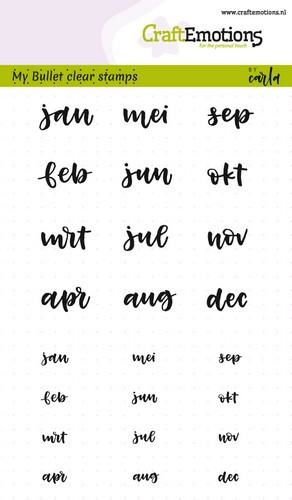 www.craftemotions.nl
CraftEmotions
For the personal touch
My Bullet clear stamps BY carla
jan mei sep
feb jun okt
mrt jul nov
apr aug dec
jan mei sep
feb jun okt
mrt jul nov
apr aug dec